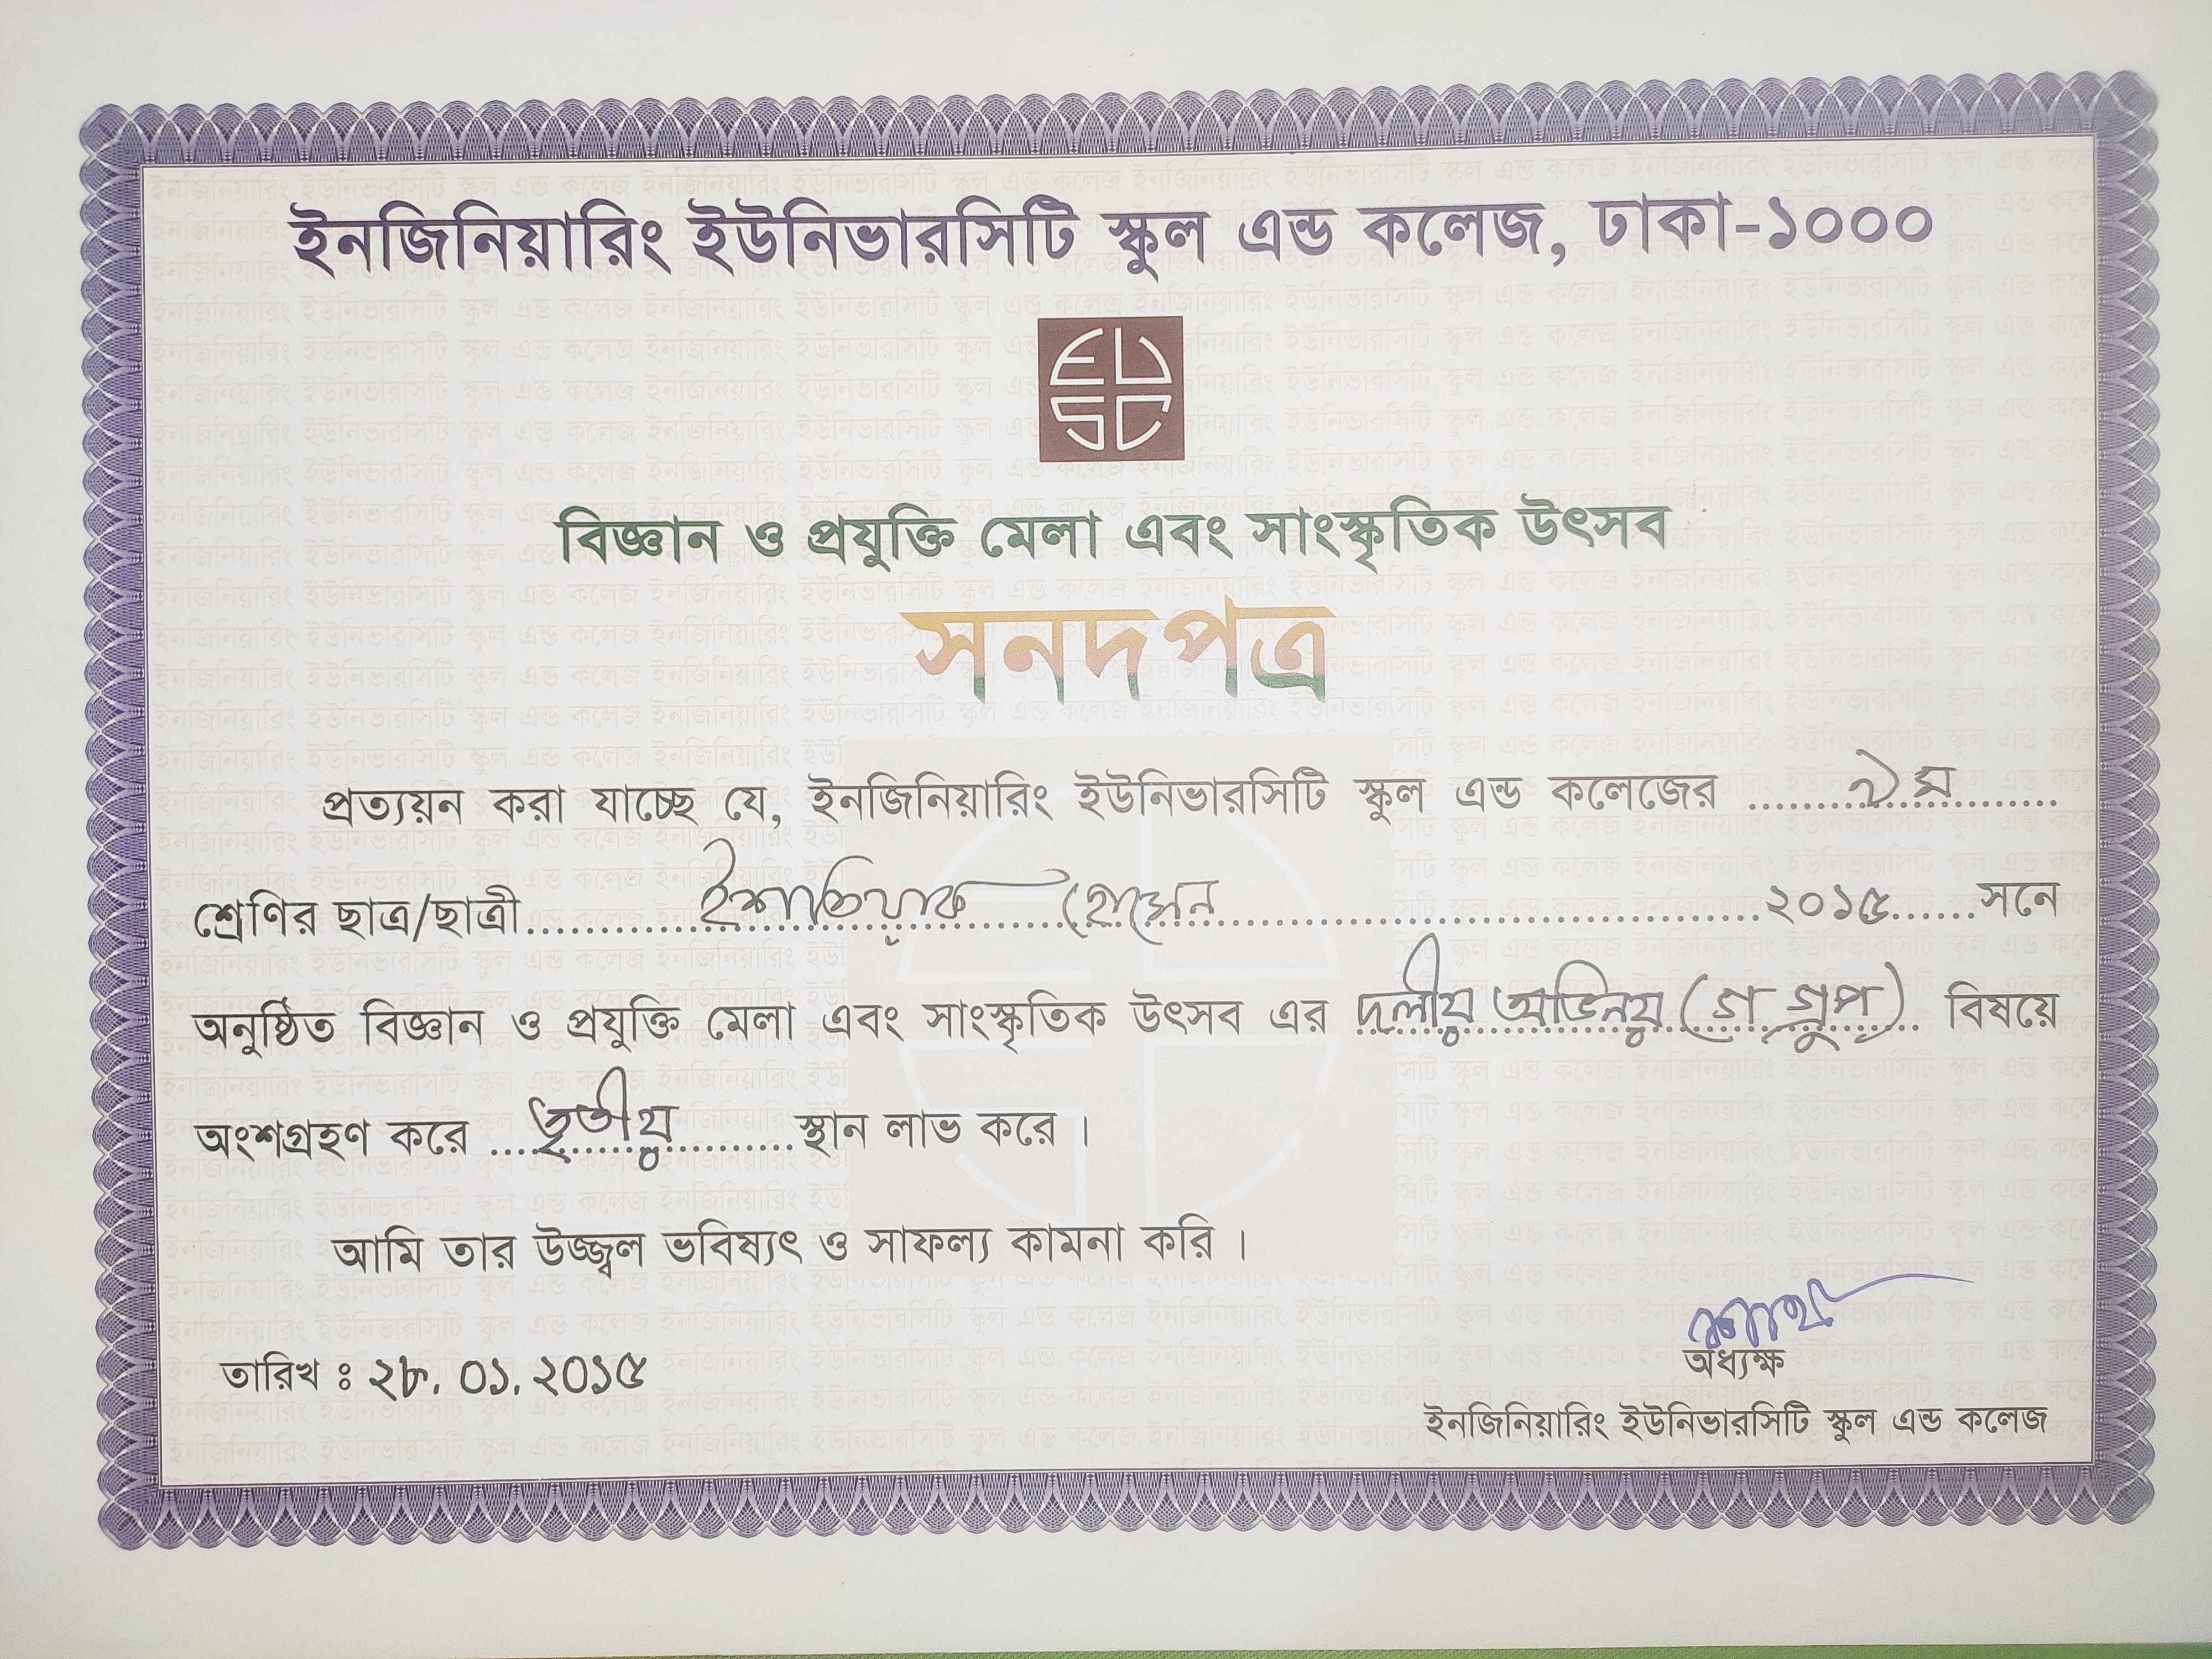 ইনজিনিয়ারিং ইউনিভারসিটি স্কুল এন্ড কলেজ, ঢাকা-১০০০
EUSC
বিজ্ঞান ও প্রযুক্তি মেলা এবং সাংস্কৃতিক উৎসব
সনদপত্র
প্রত্যয়ন করা যাচ্ছে যে, ইনজিনিয়ারিং ইউনিভারসিটি স্কুল এন্ড কলেজের ৯ম
শ্রেণির ছাত্র/ছাত্রী ইশতিয়াক হোসেন ২০১৫ সনে
অনুষ্ঠিত বিজ্ঞান ও প্রযুক্তি মেলা এবং সাংস্কৃতিক উৎসব এর দলীয় অভিনয় (গ গ্রুপ) বিষয়ে
অংশগ্রহণ করে তৃতীয় স্থান লাভ করে।
আমি তার উজ্জ্বল ভবিষ্যৎ ও সাফল্য কামনা করি।
তারিখ ঃ ২৮. ০১. ২০১৫
অধ্যক্ষ
ইনজিনিয়ারিং ইউনিভারসিটি স্কুল এন্ড কলেজ